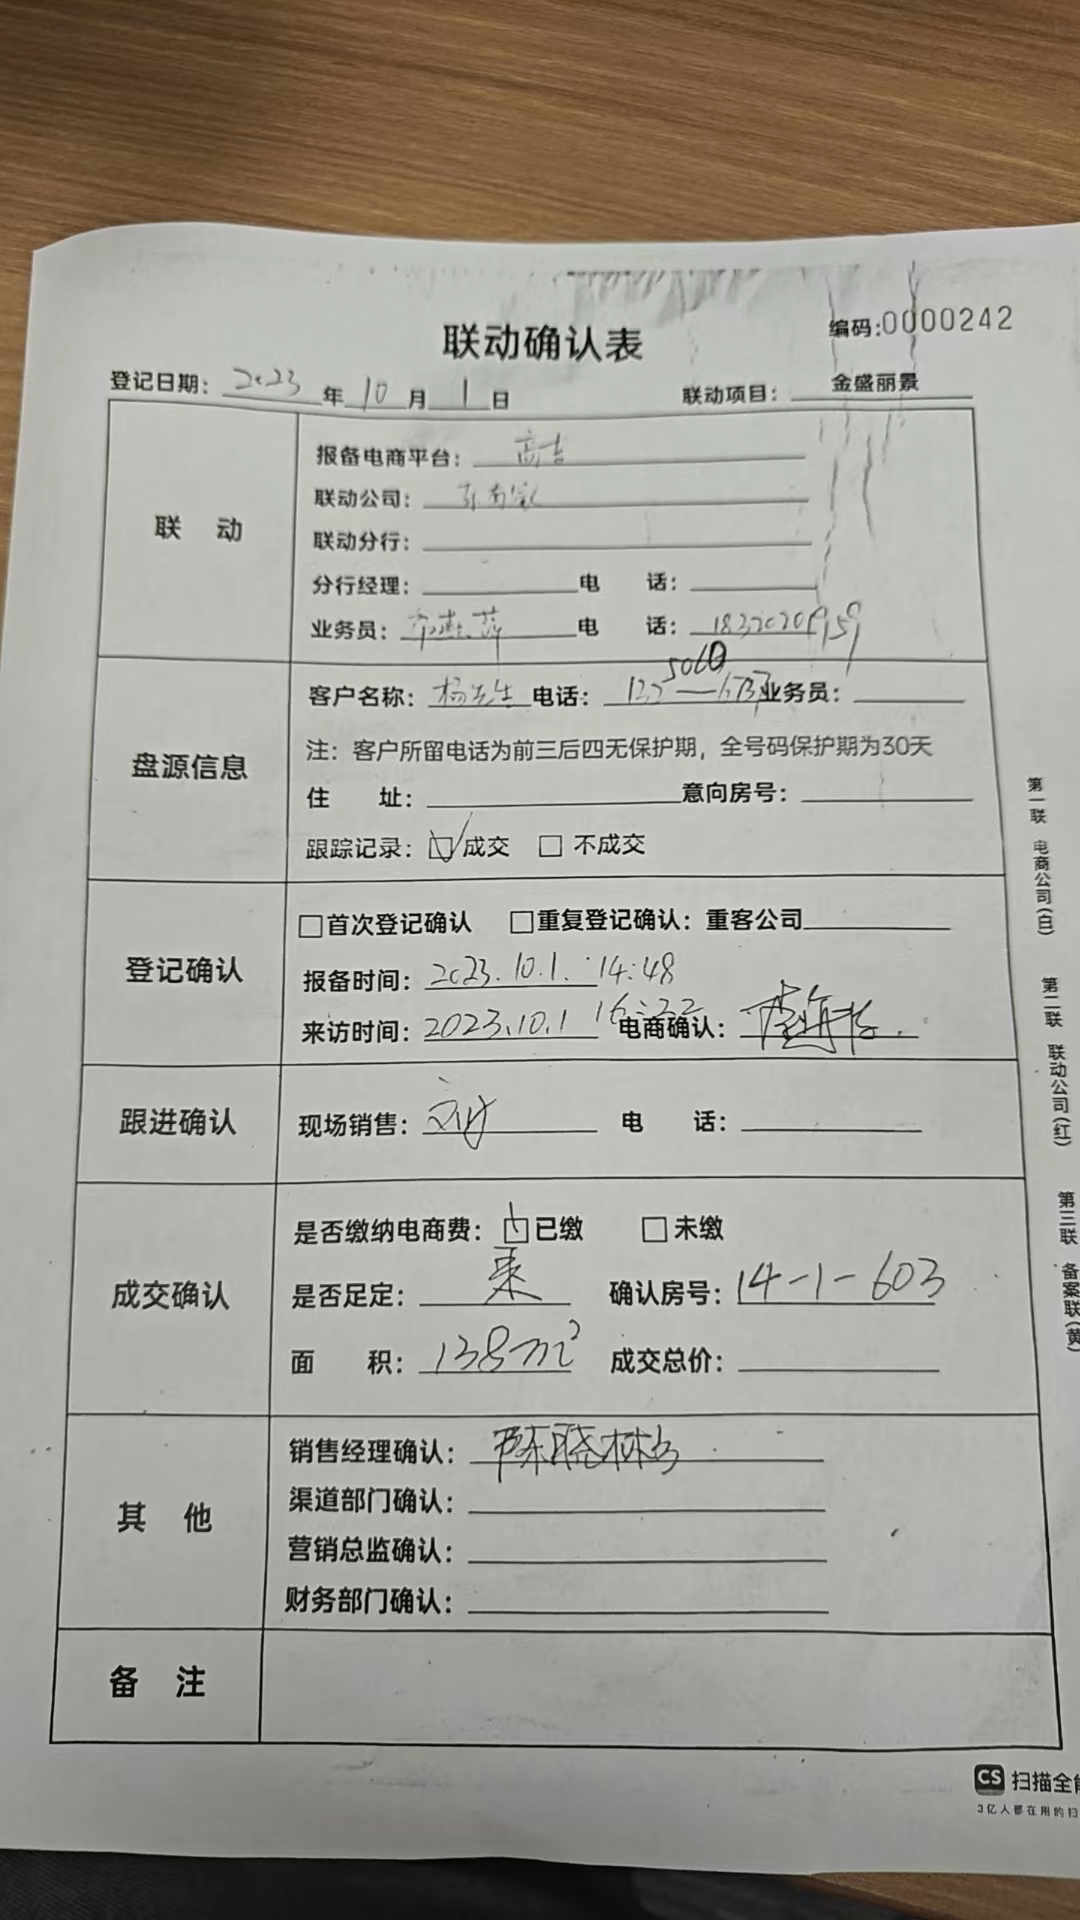 联动确认表
编码:0000242
登记日期: 2023 年 10 月 1 日 联动项目: 金盛丽景
联 动
报备电商平台:
联动公司:
联动分行:
分行经理: 电 话:
业务员: 电 话:
盘源信息
客户名称: 杨先生 电话: 业务员:
注: 客户所留电话为前三后四无保护期, 全号码保护期为30天
住 址: 意向房号:
跟踪记录: ☑成交 □不成交
登记确认
□首次登记确认 □重复登记确认: 重客公司
报备时间: 2023.10.1. 14:48
来访时间: 2023.10.1 16:22 电商确认:
跟进确认
现场销售: 电 话:
成交确认
是否缴纳电商费: ☑已缴 □未缴
是否足定: 确认房号: 14-1-603
面 积: 138m² 成交总价:
其 他
销售经理确认: 陈晓彬
渠道部门确认:
营销总监确认:
财务部门确认:
备 注
第一联 电商公司(白)
第二联 联动公司(红)
第三联 备案联(黄)
CS 扫描全能
3亿人都在用的扫